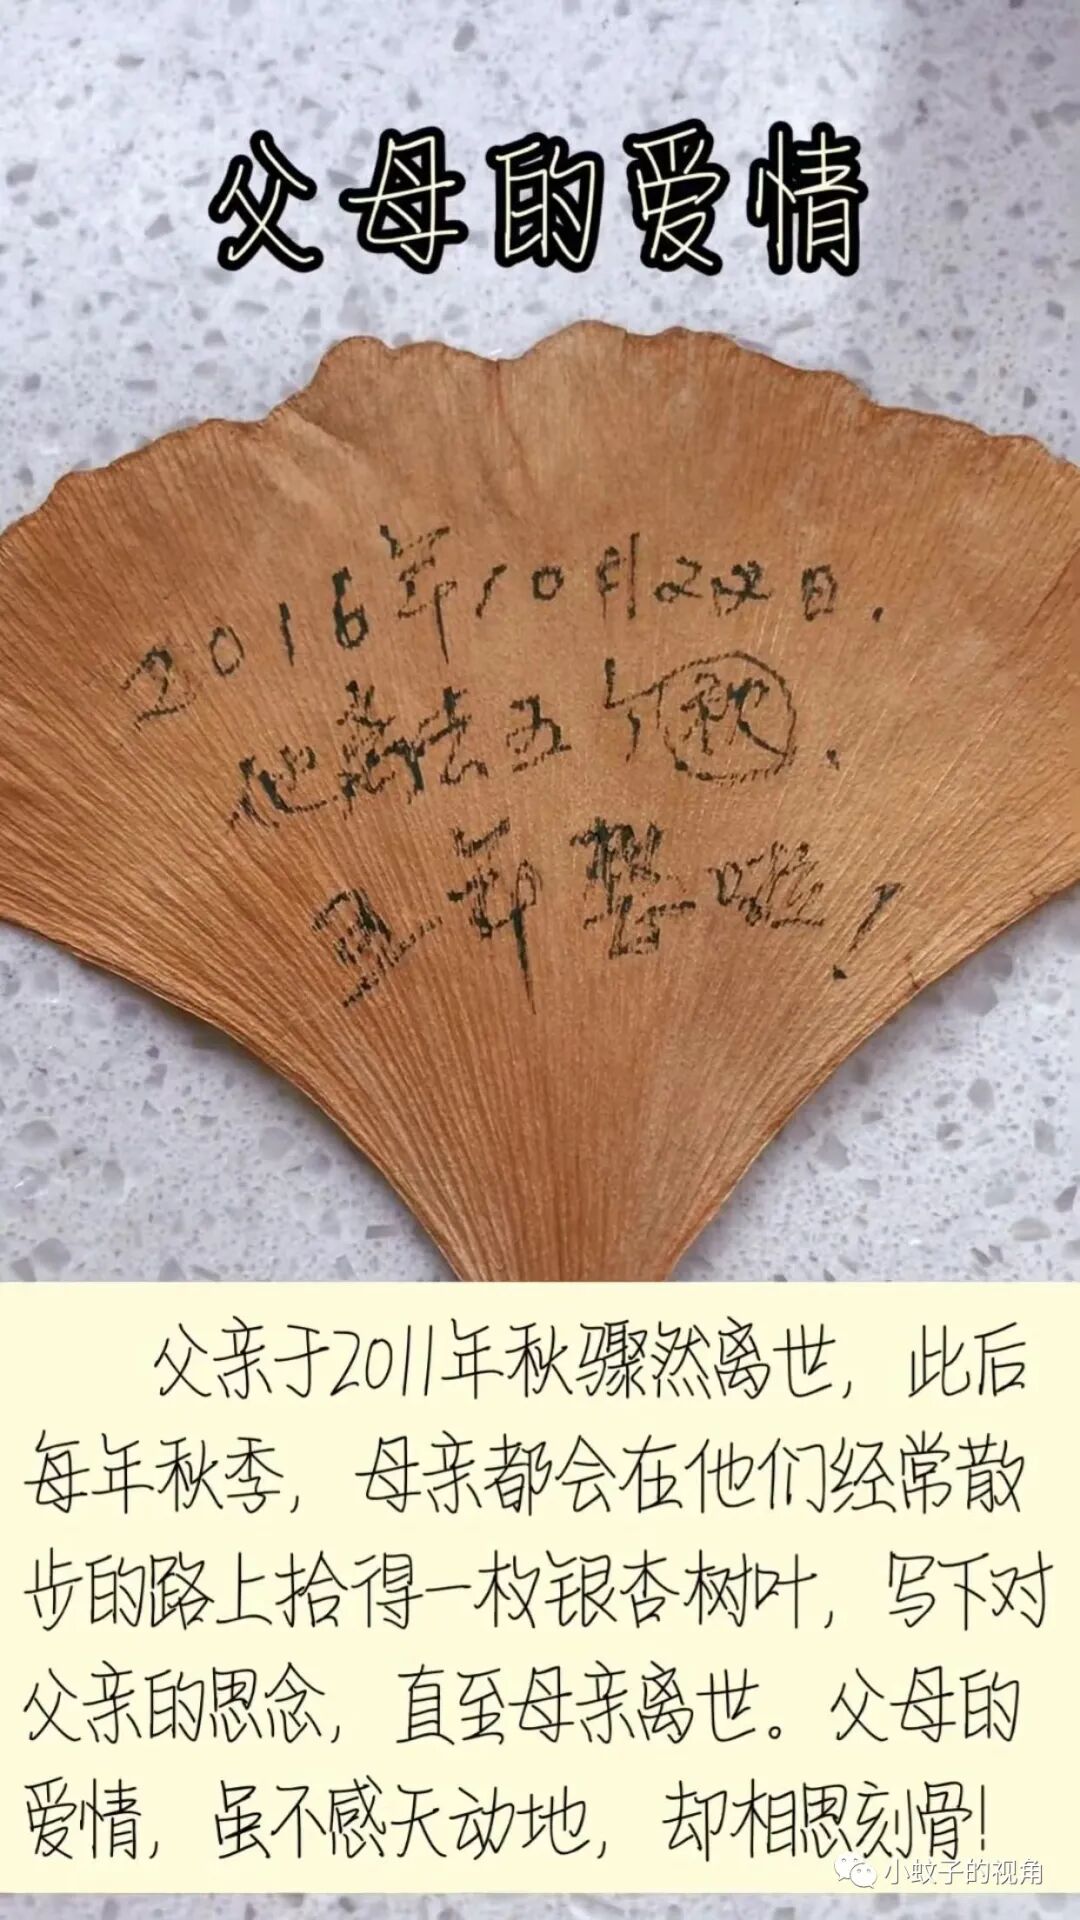 父母的爱情
2016年10月22日.
他离去五个秋.
五年整啦!
父亲于2011年秋骤然离世，此后
每年秋季，母亲都会在他们经常散
步的路上拾得一枚银杏树叶，写下对
父亲的思念，直至母亲离世。父母的
爱情，虽不感天动地，却相思刻骨！
小蚊子的视角